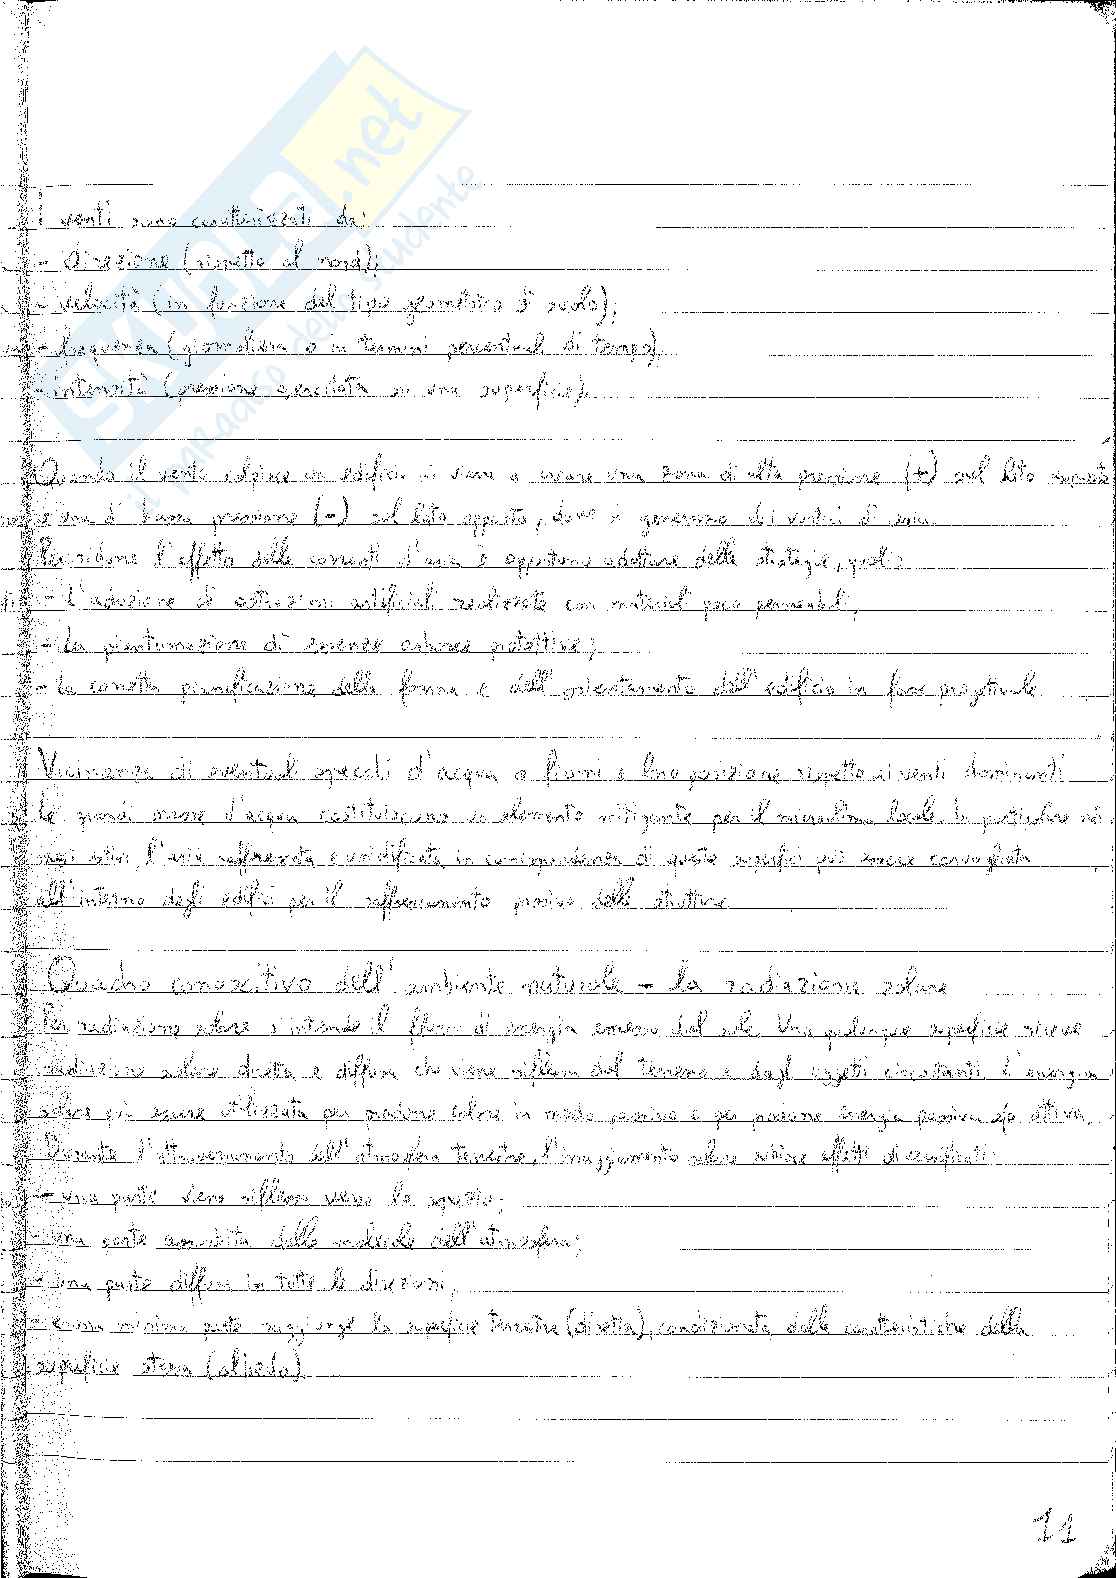 I venti sono caratterizzati da:
- direzione (rispetto al nord);
- velocità (in funzione del tipo geometrico di suolo);
- frequenza (giornaliera o in termini percentuali di tempo);
- intensità (pressione esercitata su una superficie).
Quando il vento colpisce un edificio si viene a creare una zona di alta pressione (+) sul lato
e una di bassa pressione (-) sul lato opposto, dove si generano dei vortici di aria.
Per ridurre l'effetto delle correnti d'aria è opportuno adottare delle strategie, quali:
- L'adozione di ostruzioni artificiali realizzate con materiali poco permeabili;
- La piantumazione di essenze arboree protettive;
- La corretta pianificazione della forma e dell'orientamento dell'edificio in fase progettuale.
Vicinanza di eventuali specchi d'acqua o fiumi e loro posizione rispetto ai venti dominanti
Le grandi masse d'acqua costituiscono un elemento mitigante per il microclima locale. In particolare nei
mesi estivi l'aria raffrescata e umidificata in corrispondenza di queste superfici può essere convogliata
all'interno degli edifici per il raffrescamento passivo delle strutture.
Quadro conoscitivo dell'ambiente naturale - la radiazione solare
Per radiazione solare s'intende il flusso di energia emesso dal sole. Una qualunque superficie riceve
radiazione solare diretta e diffusa che viene riflessa dal terreno e dagli oggetti circostanti. L'energia
solare può essere utilizzata per produrre calore in modo passivo e per produrre energia passiva e/o attiva.
Durante l'attraversamento dell'atmosfera terrestre, l'irraggiamento solare subisce effetti diversificati:
- una parte viene riflessa verso lo spazio;
- una parte assorbita dalle molecole dell'atmosfera;
- una parte diffusa in tutte le direzioni;
- e una minima parte raggiunge la superficie terrestre (diretta), condizionata dalle caratteristiche della
superficie stessa (albedo).
11
SKUOLA.net
il paradiso dello studente